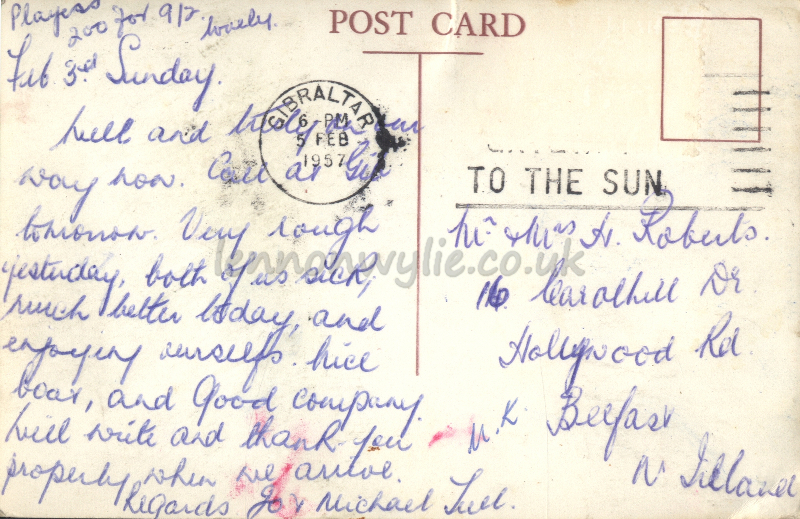 Players
200 for 9/2.
lovely.
Feb 3rd Sunday.
Well and truly on our
way now. Call at Gib
tomorrow. Very rough
yesterday, both of us sick,
much better today, and
enjoying ourselfs. Nice
boat, and Good company.
Will write and thank you
properly when we arrive.
Regards Joy Michael
POST CARD
GIBRALTAR
6 PM
5 FEB
1957
TO THE SUN
Mr & Mrs H. Roberts.
16 Carolhill Dr
Hollywood Rd.
Belfast
U.K.
N Irland
lennonwylie.co.uk